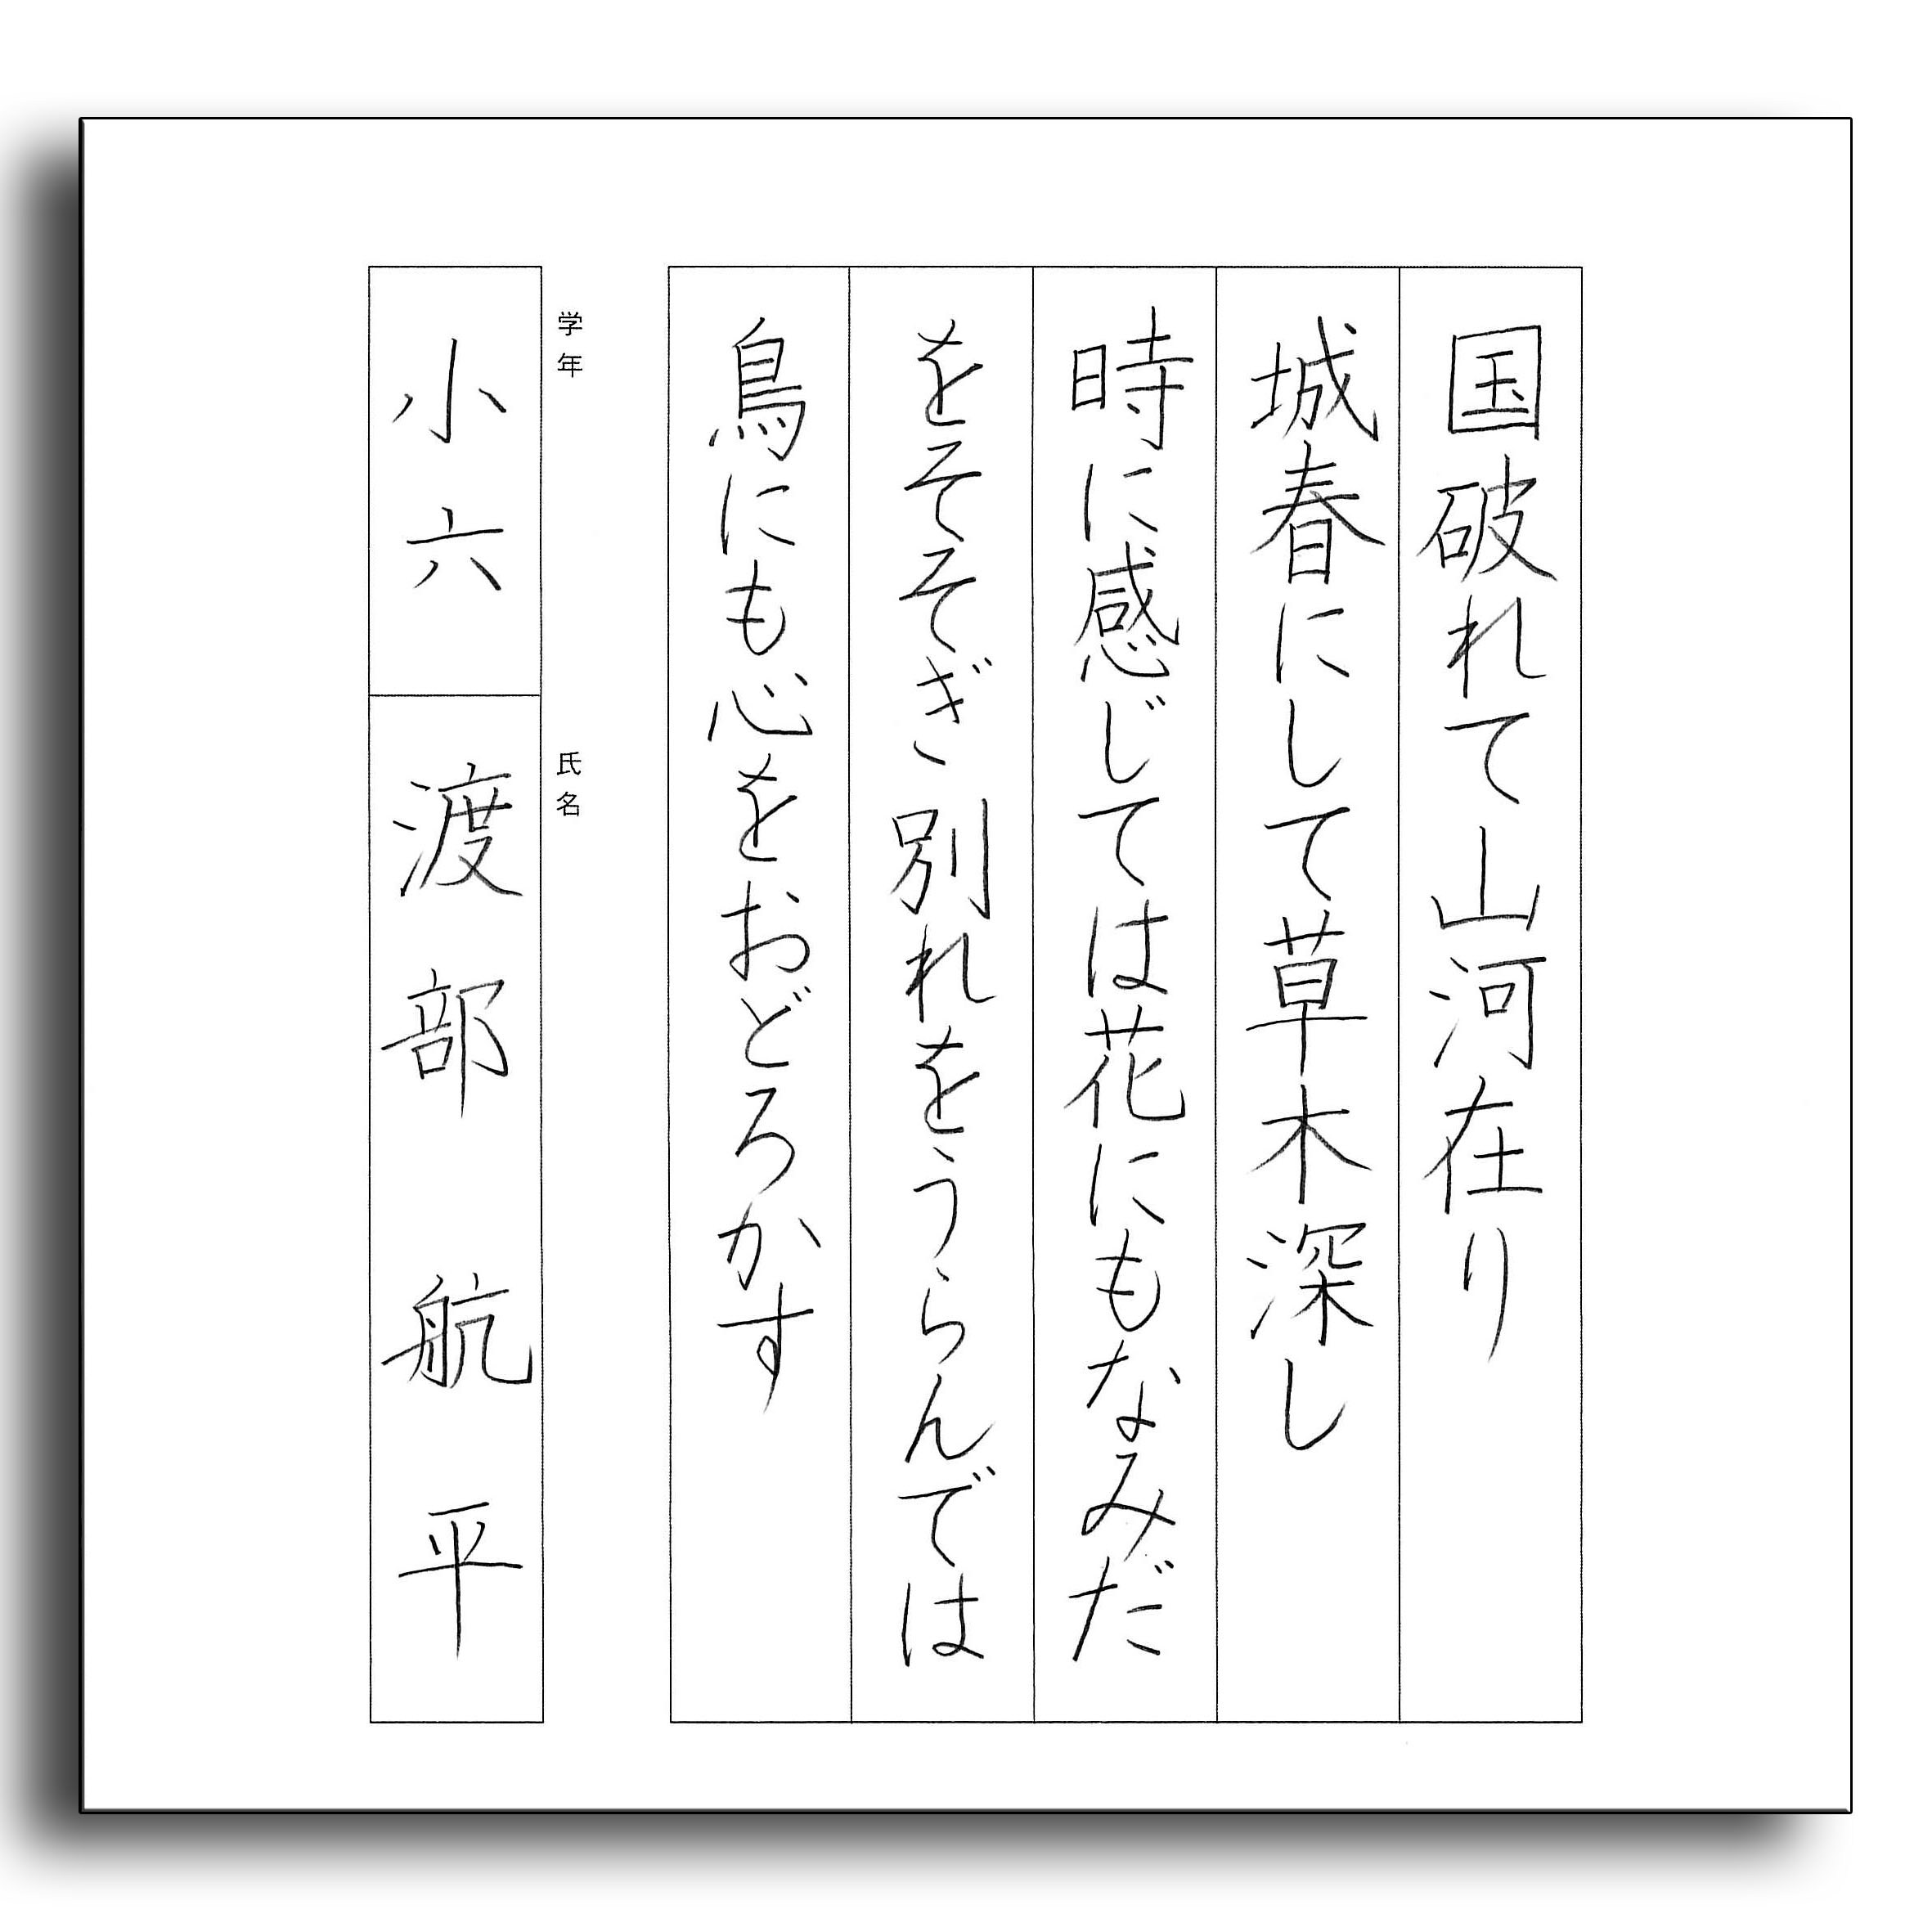 国破れて山河在り
城春にして草木深し
時に感じては花にもなみだ
をそそぎ別れをうらんでは
鳥にも心をおどろかす
学年
小六
氏名
渡部航平